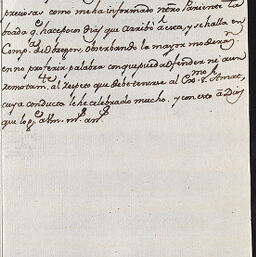 preciosas como me ha informado nr̃o Pariente La
boada q.^e hace pocos dias que arribó à esta, y se halla en
Comp.^a de Obregon, obserbando la mayor moderaz.^n
en no proferir palabra con que pueda ofender ni aun
remotam.^te al respeto que debe tenerse al Ex.^mo S.^r Amat,
cuya conducta le he celebrado mucho. y con esto à Dios
que lo g.^e a Vm. m.^s an.^s